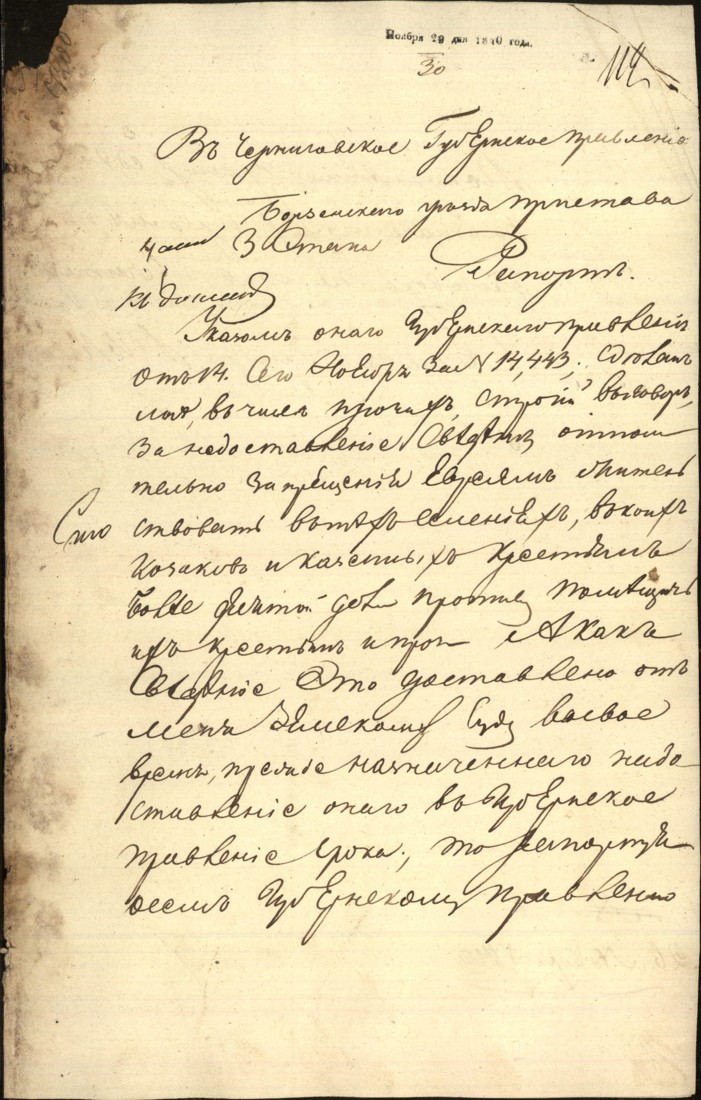 Ноября 29 дня 1840 года.
30
114
Въ Черниговское Губернское правленіе
Борзенскаго уезда пристава
3 Стана
Рапортъ.
Указомъ онаго Губернскаго правленія
отъ 14. сего Ноября за № 14,443, сделанъ
мне, въ числе прочихъ, строгій выговоръ,
за недоставленіе сведения относи
тельно запрещенія Евреямъ жительст
ствовать въ техъ селеніяхъ, въ коихъ
козаковъ и казенныхъ крестьянъ
более пятой доли противъ помещичь
ихъ крестьянъ и проч. А какъ
сведеніе это доставлено отъ
меня Земскому Суду во свое
время, прежде назначеннаго на до
ставленіе онаго въ Губернское
правленіе срока, то рапортуя
о семъ Губернскому правленію